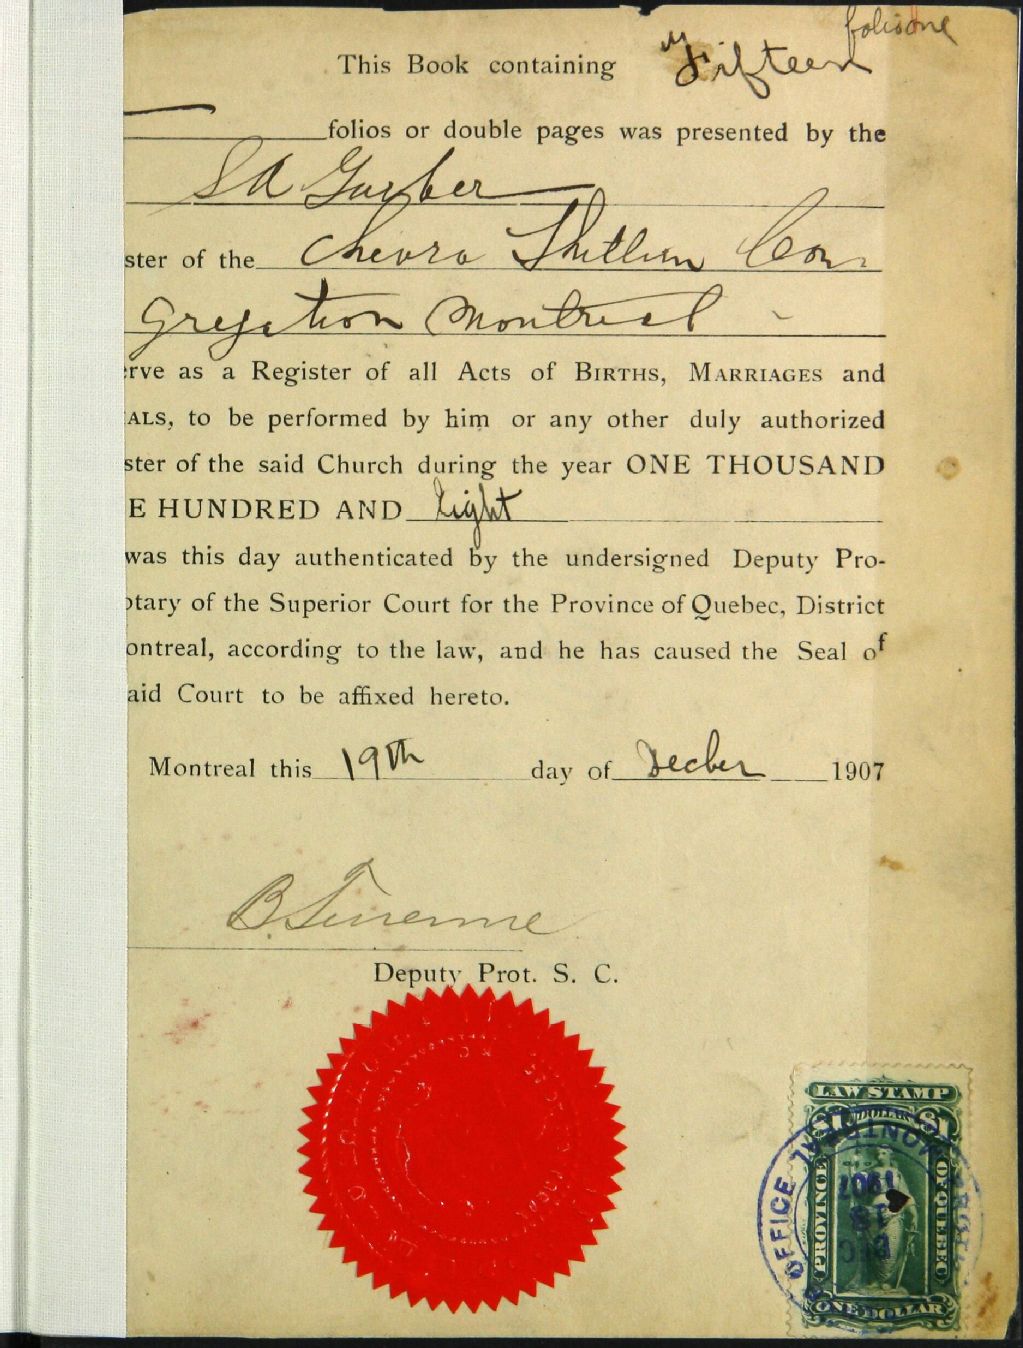 folio one
This Book containing Fifteen
folios or double pages was presented by the
S A Garber
ster of the Chevra Thillim Con
gregation Montreal
rve as a Register of all Acts of BIRTHS, MARRIAGES and
ALS, to be performed by him or any other duly authorized
ster of the said Church during the year ONE THOUSAND
E HUNDRED AND Eight
was this day authenticated by the undersigned Deputy Pro-
otary of the Superior Court for the Province of Quebec, District
ontreal, according to the law, and he has caused the Seal of
aid Court to be affixed hereto.
Montreal this 19th day of Decber 1907
B. Turenne
Deputy Prot. S. C.
LAW STAMP
$1 DOLLAR $1
PROVINCE OF QUEBEC
ONE DOLLAR
OFFICE MONTREAL
1907